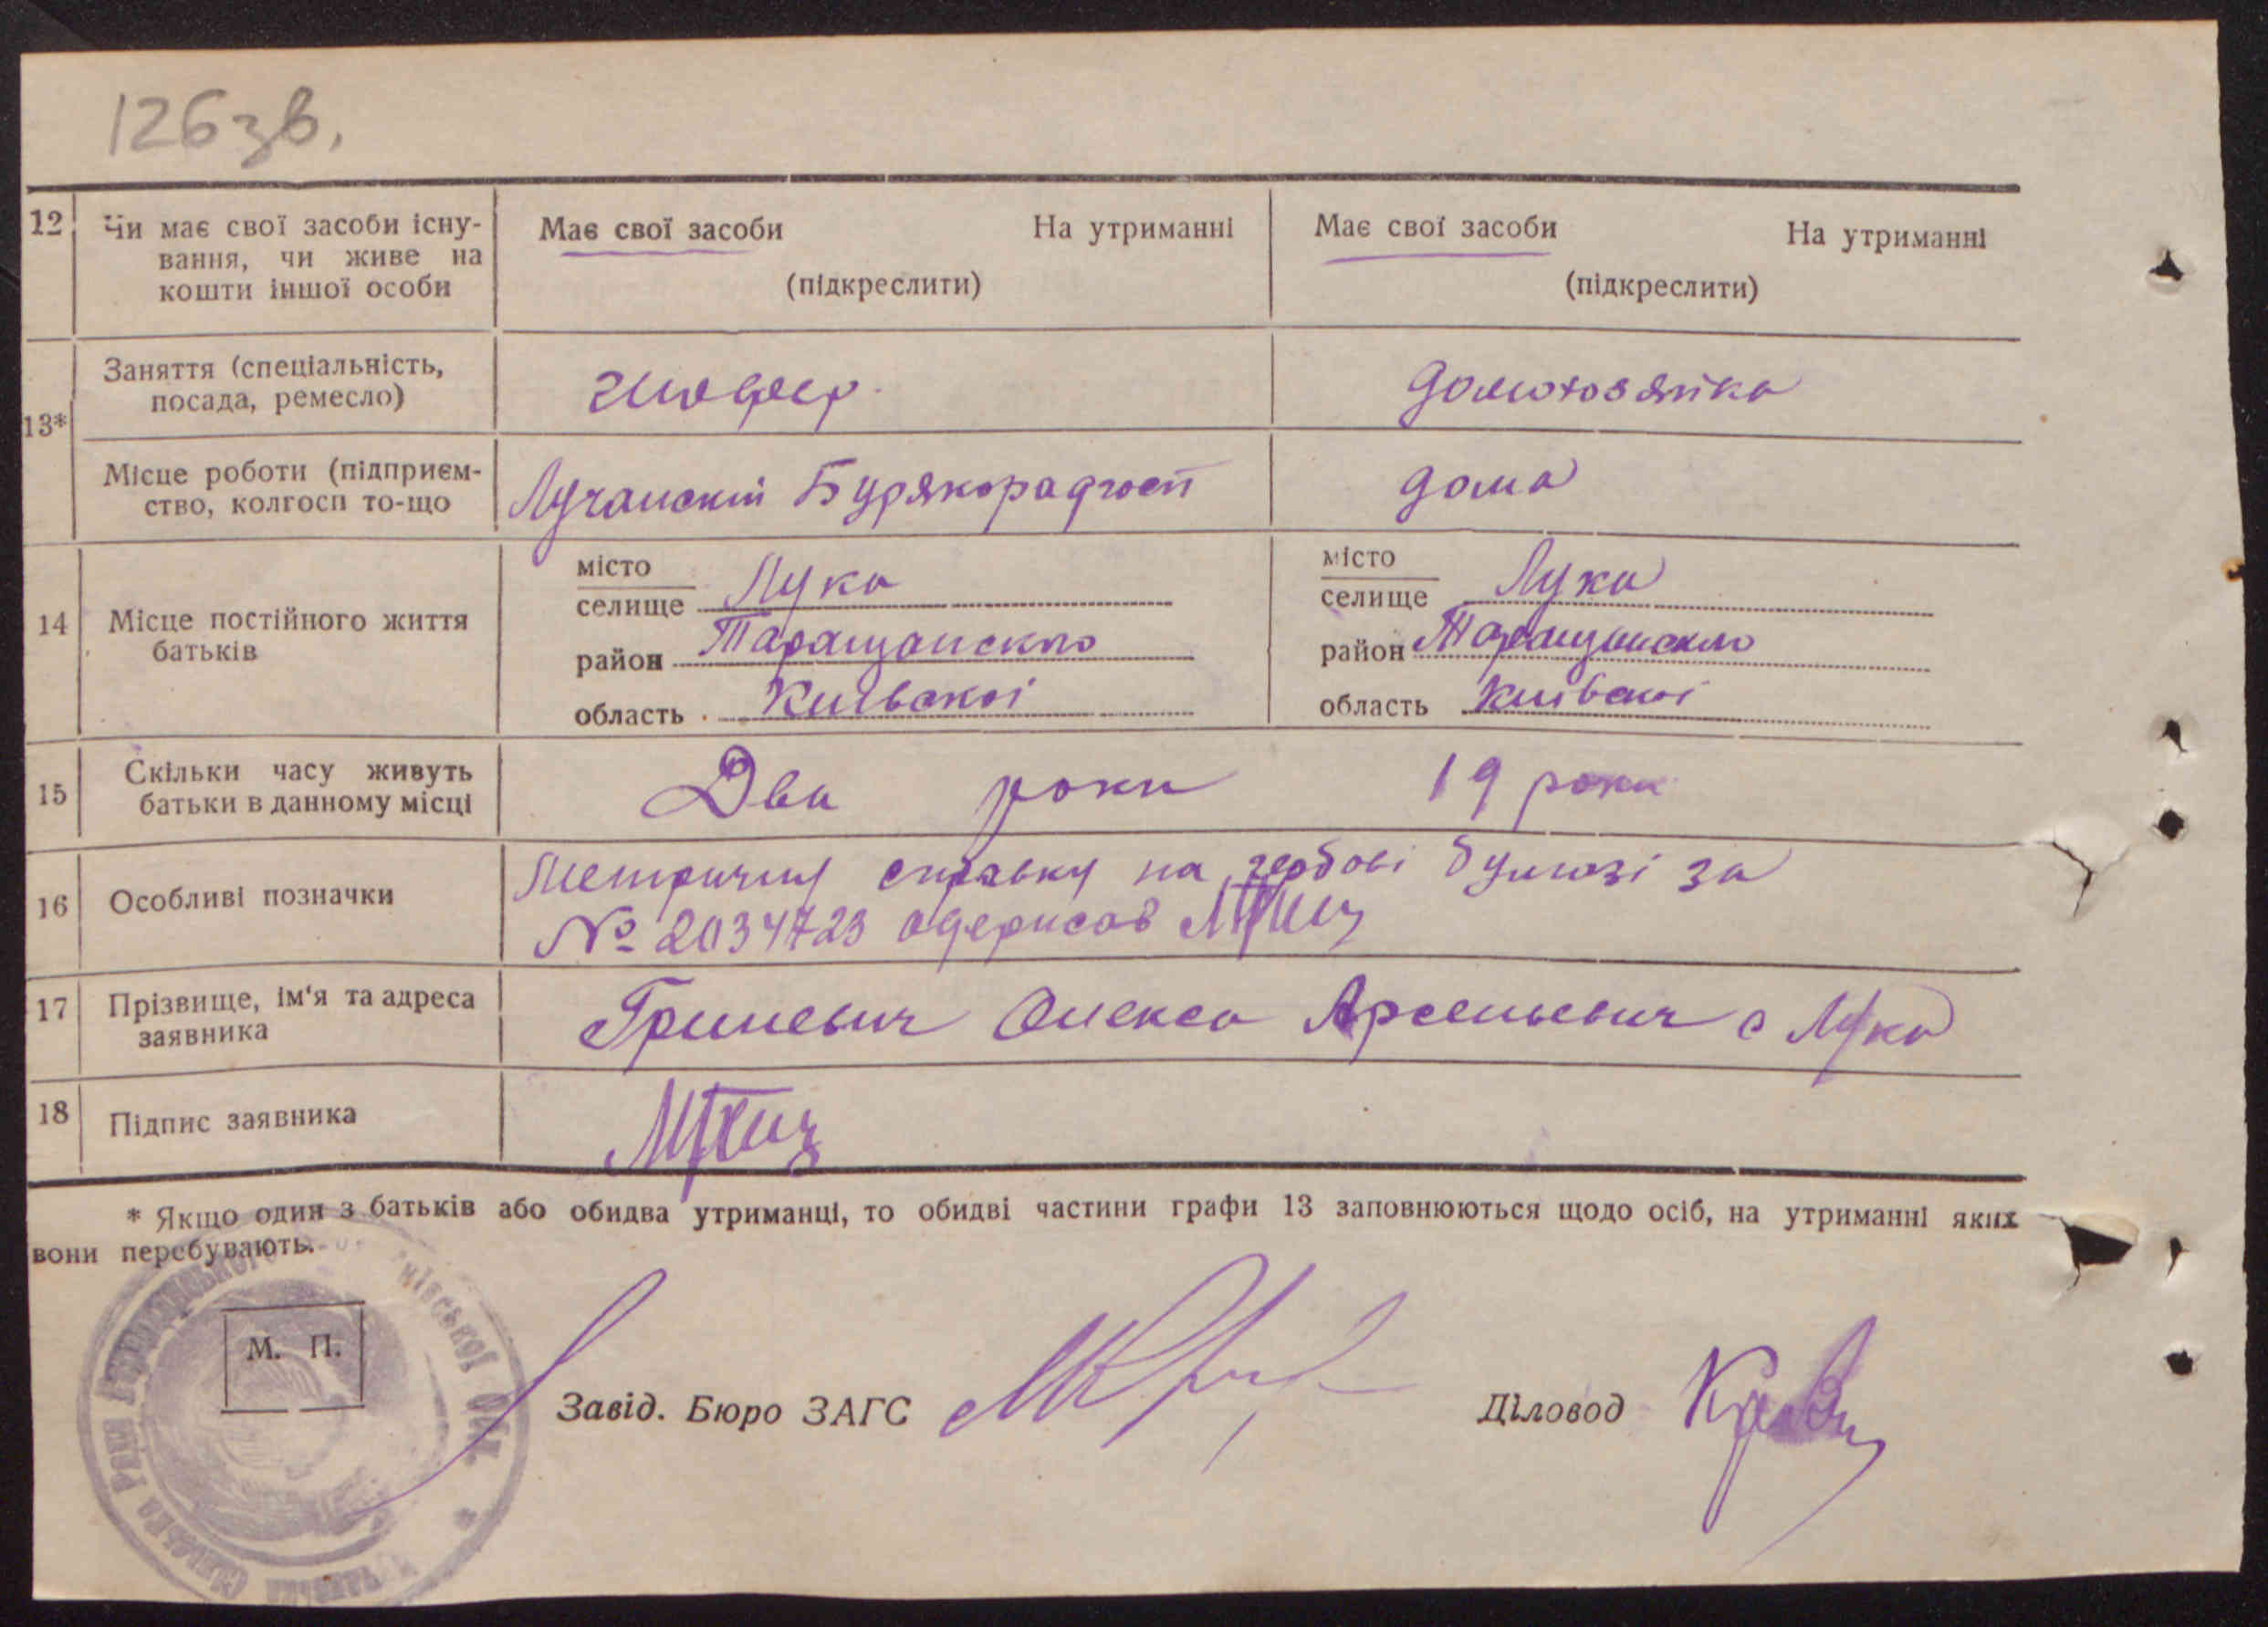 126 зв.
12 Чи має свої засоби існу-
вання, чи живе на
кошти іншої особи
Має свої засоби На утриманні
(підкреслити)
Має свої засоби На утриманні
(підкреслити)
13*
Заняття (спеціальність,
посада, ремесло)
Шофер
домохозяйка
Місце роботи (підприєм-
ство, колгосп то-що
Лучанский Бурякорадгосп
дома
14 Місце постійного життя
батьків
місто
селище Лука
район Таращанского
область Київскої
місто
селище Лука
район Таращанского
область Київскої
15 Скільки часу живуть
батьки в данному місці
Два роки
19 роки
16 Особливі позначки
Метричну справку на гербові бумозі за
№ 2034723 одержав
17 Прізвище, ім'я та адреса
заявника
Гриневич Олекса Арсеньевич с Лука
18 Підпис заявника
* Якщо один з батьків або обидва утриманці, то обидві частини графи 13 заповнюються щодо осіб, на утриманні яких
вони перебувають.
М. П.
Завід. Бюро ЗАГС
Діловод